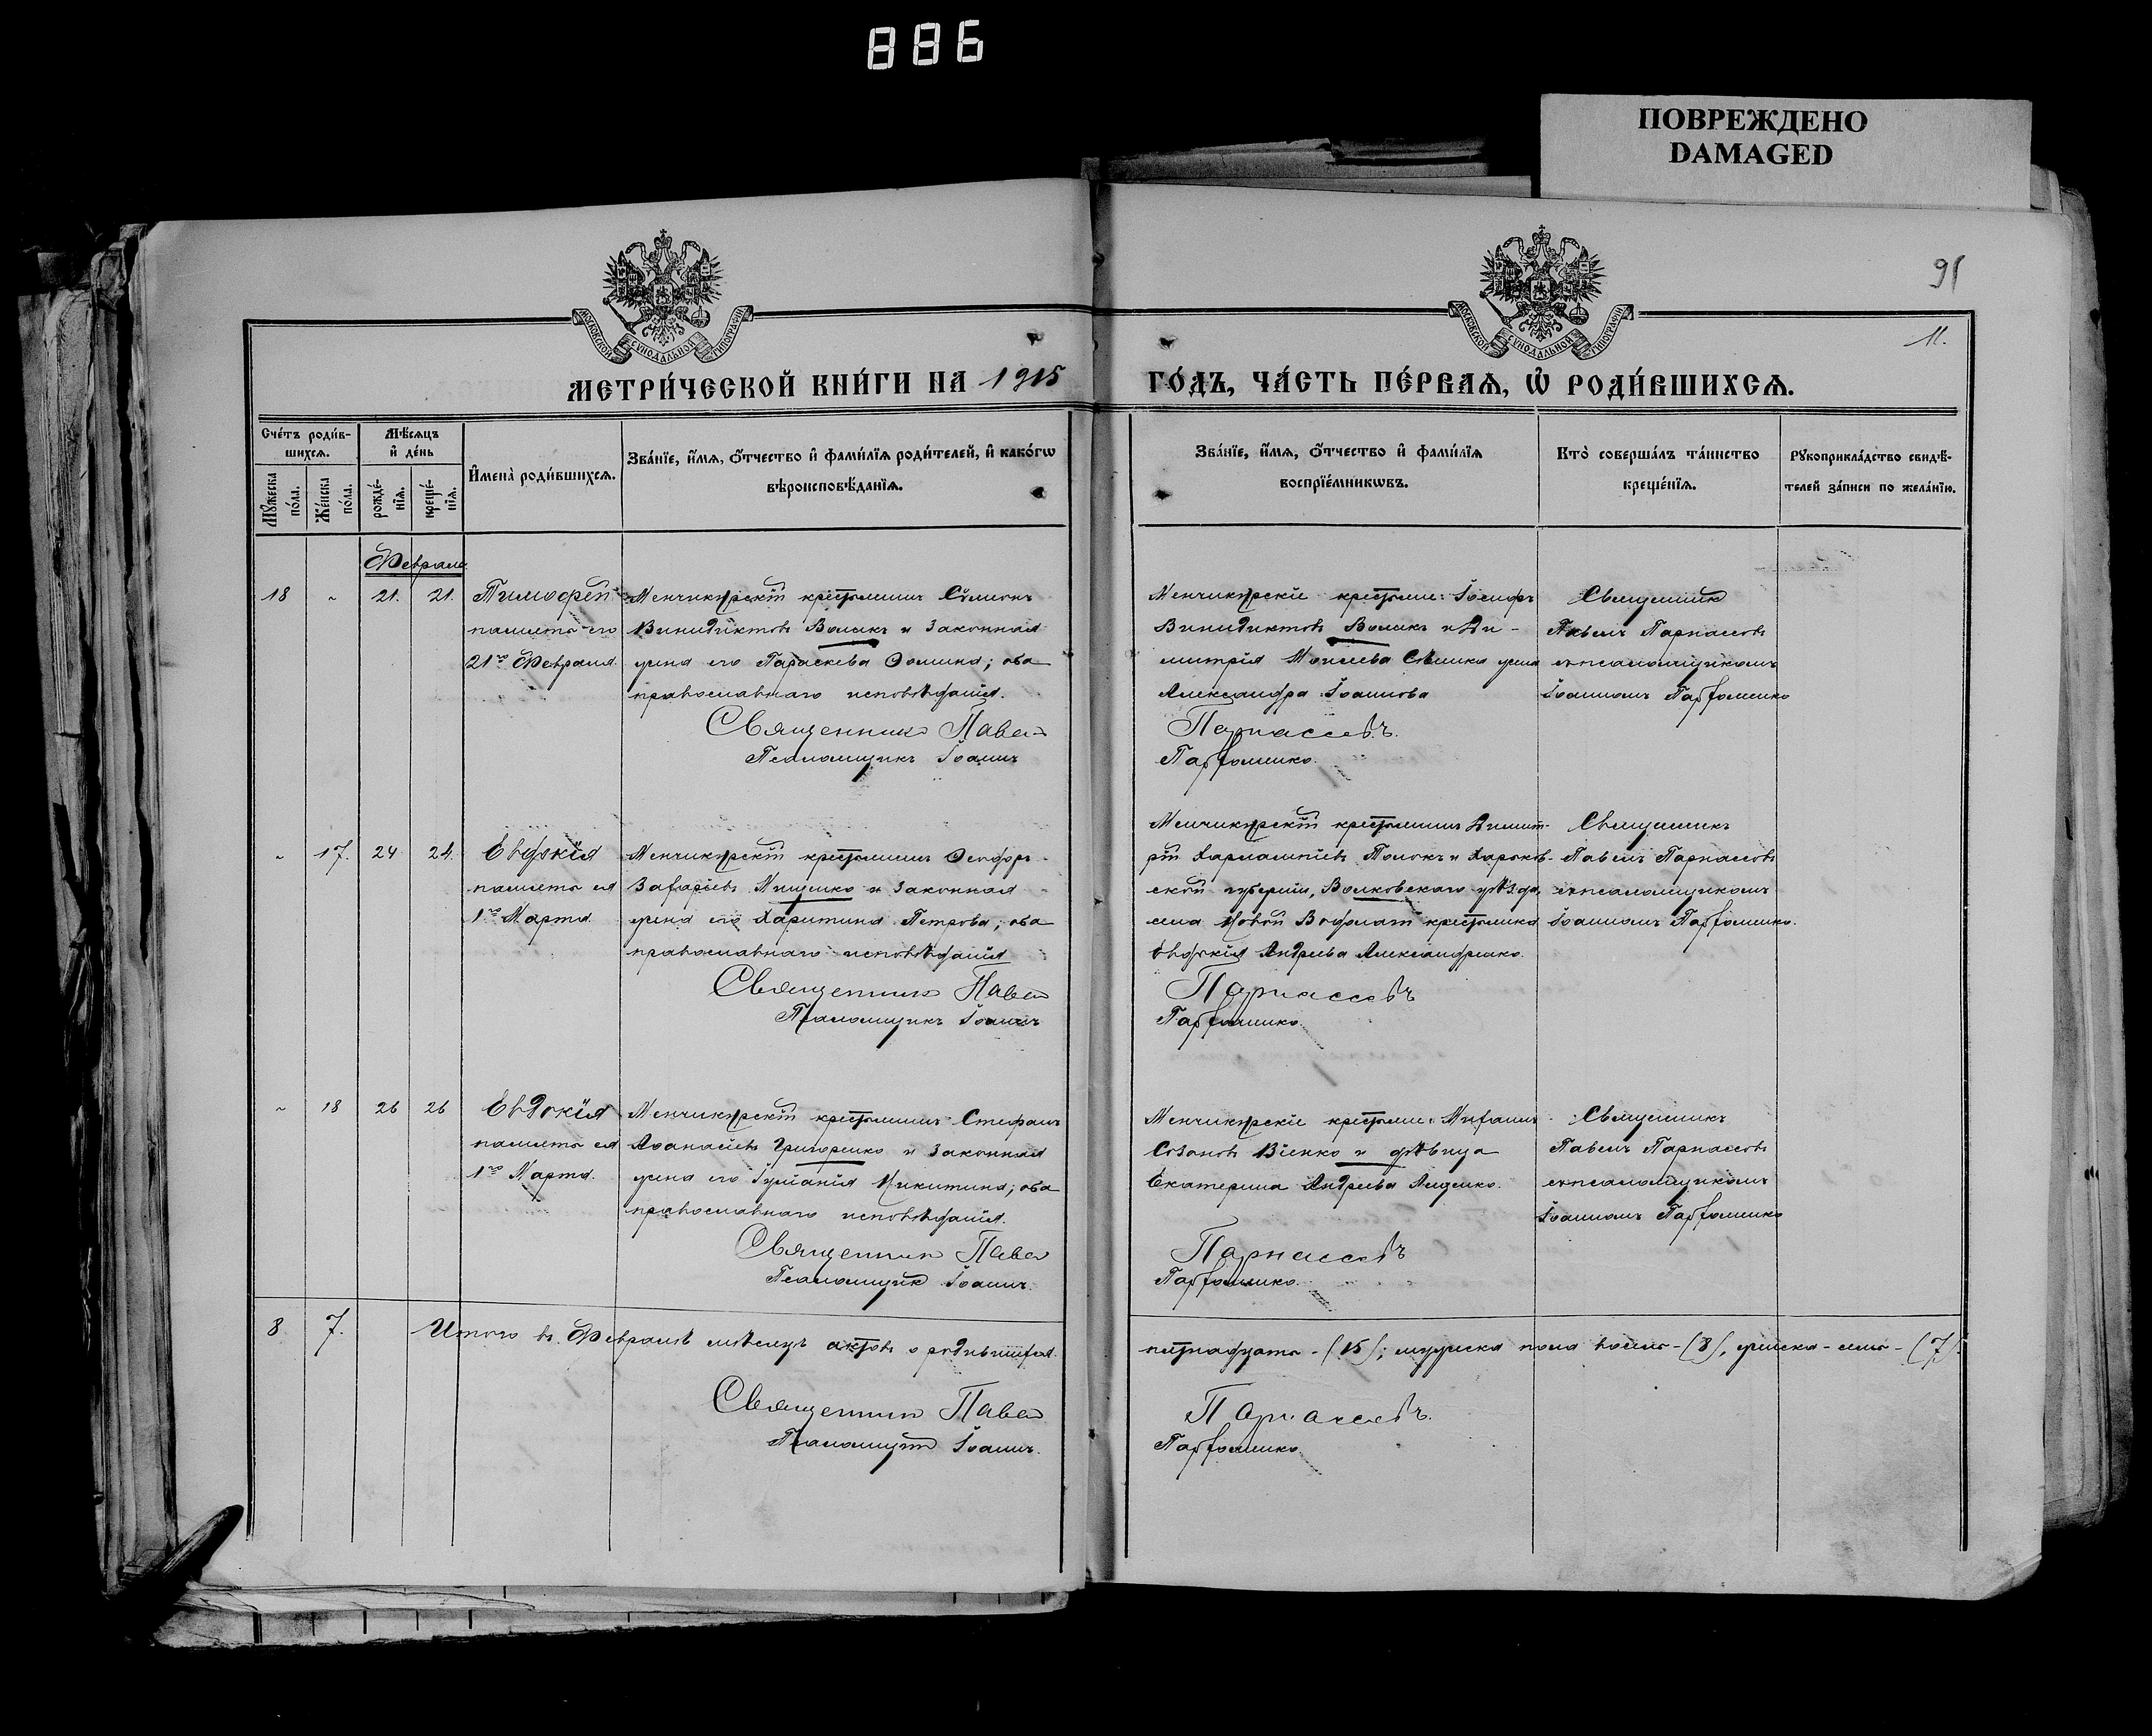 886
ПОВРЕЖДЕНО
DAMAGED
91
11.
МОСКОВСКОЙ СѴНОДАЛЬНОЙ ТИПОГРАФІИ
МОСКОВСКОЙ СѴНОДАЛЬНОЙ ТИПОГРАФІИ
МЕТРИ́ЧЕСКОЙ КНИ́ГИ НА 1915
ГО́ДЪ, ЧА́СТЬ ПЕ́РВАѦ, Ѡ҆ РОДИ́ВШИХСѦ.
Сче́тъ роди́в-
шихсѧ.
Мꙋ́жеска
по́ла.
Же́нска
по́ла.
Мѣ́сѧцъ
и҆ де́нь
рожде́-
нїѧ.
креще́-
нїѧ.
И҆мена̀ роди́вшихсѧ.
Зва́нїе, и҆́мѧ, ѻ҆́тчество и҆ фами́лїѧ роди́телей, и҆ како́гѡ
вѣроисповѣ́данїѧ.
Зва́нїе, и҆́мѧ, ѻ҆́тчество и҆ фами́лїѧ
воспрїе́мникѡвъ.
Кто̀ соверша́лъ та́инство
креще́нїѧ.
Рꙋкоприкла́дство свидѣ́-
телей за́писи по жела́нїю.
Февраль
18 " 21. 21. Тимофей
память его
21го Февраля.
Менчикурскій крестьянинъ Сѵмеонъ
Винидиктовъ Воликъ и законная
жена его Параскева Ѳомина; оба
православнаго исповѣданія.
Священникъ Павелъ
Псаломщикъ Іоаннъ
Менчикурскіе крестьяне: Іосифъ
Винидиктовъ Воликъ и Ди-
митрія Моисеева жена
Александра Іоаннова
Парнассовъ.
Парфоменко.
Священникъ
Павелъ Парнассовъ
съ псаломщикомъ
Іоанномъ Парфоменко
" 17. 24 24. Евдокія
память ея
1го Марта.
Менчикурскій крестьянинъ Ѳеодоръ
Захаріевъ Мищенко и законная
жена его Харитина Петрова; оба
православнаго исповѣданія
Священникъ Павелъ
Псаломщикъ Іоаннъ
Менчикурскій крестьянинъ Димит-
рій Харлампіевъ и Харьков-
ской губерніи, Волковскаго уѣзда,
села Новой Водолаги крестьянка
Евдокія Андреева Александренко.
Парнассовъ
Парфоменко.
Священникъ
Павелъ Парнассовъ
съ псаломщикомъ
Іоанномъ Парфоменко.
" 18 26 26 Евдокія
память ея
1го Марта.
Менчикурскій крестьянинъ Стефанъ
Аѳанасіевъ Григоренко и законная
жена его Іуліанія Никитина; оба
православнаго исповѣданія.
Священникъ Павелъ
Псаломщикъ Іоаннъ.
Менчикурскіе крестьяне: Михаилъ
Созоновъ и дѣвица
Екатерина Андреева Лещенко.
Парнассовъ
Парфоменко.
Священникъ
Павелъ Парнассовъ
съ псаломщикомъ
Іоанномъ Парфоменко
8 7. Итого въ Февралѣ мѣсяцѣ актовъ о родившихся
пятнадцать - (15); мужеска пола восемь - (8), женска - семь - (7).
Священникъ Павелъ
Псаломщикъ Іоаннъ.
Парнассовъ.
Парфоменко.